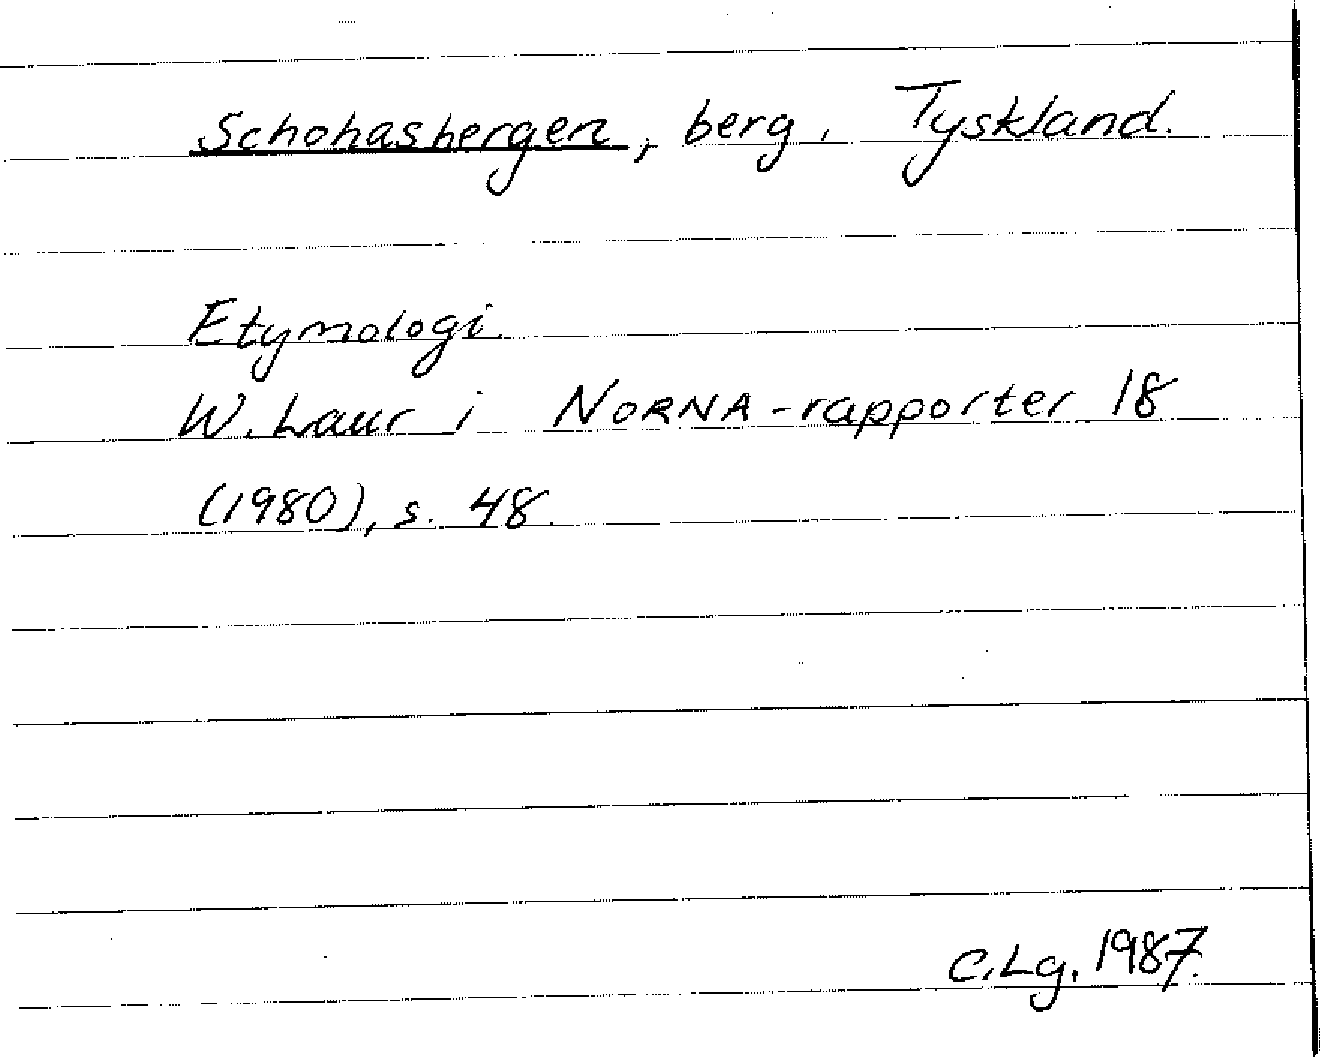 Schohasbergen, berg, Tyskland.
Etymologi.
W. Laur i NORNA-rapporter 18
(1980), s. 48.
C.Lg. 1987.